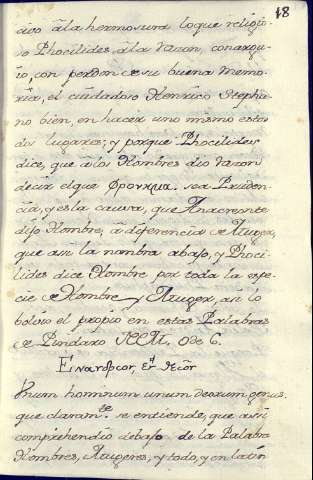 18
aviso à la hermosura lo que religio-
so Phocilides à la Razon, conargu-
io, con perdon de su buena Memo-
ria, el cuidadoso Henrico Stepha-
no bien, en hacer uno mismo estos
dos lugares; y porque Phocilides
dice, que à los Hombres dio Razon
decir el que φρονημα. sea Pruden-
cia, y esla causa, que Anacreonte
dijo Hombre, à diferencia de Muger,
que asi la nombra abajo, y Phoci-
lides dice Hombre por toda la espe-
cie de Hombre y Muger, asi lo
bolvio el propio en estas Palabras
de Pindaro NEM. Ode 6.
Unum hominum unum deorum genus.
que claramte. se entiende, que asi
comprehendio debajo de la Palabra
Hombres, Mugeres, y todo, y en latin